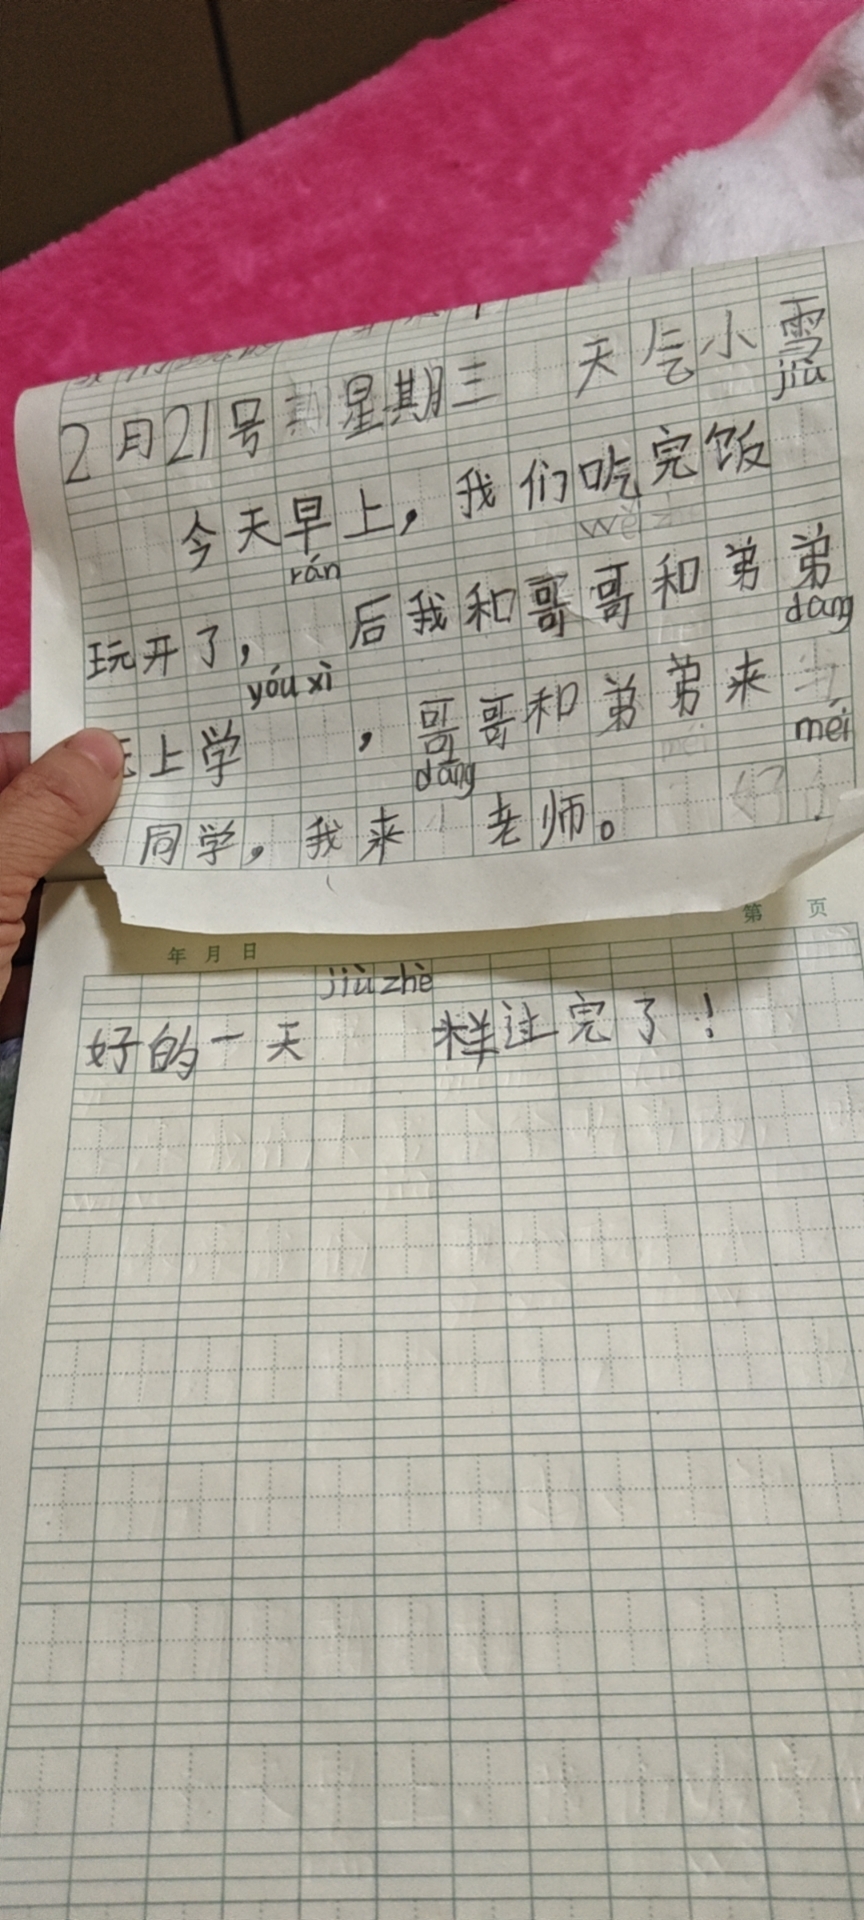 2月21号 星期三 天气小雪
jiù
今天早上，我们吃完饭
rán
玩开了， 后我和哥哥和弟弟
yóu xì dāng
上学 ，哥哥和弟弟来
dāng méi
同学，我来 老师。
年 月 日 第 页
jiù zhè
好的一天 样过完了！